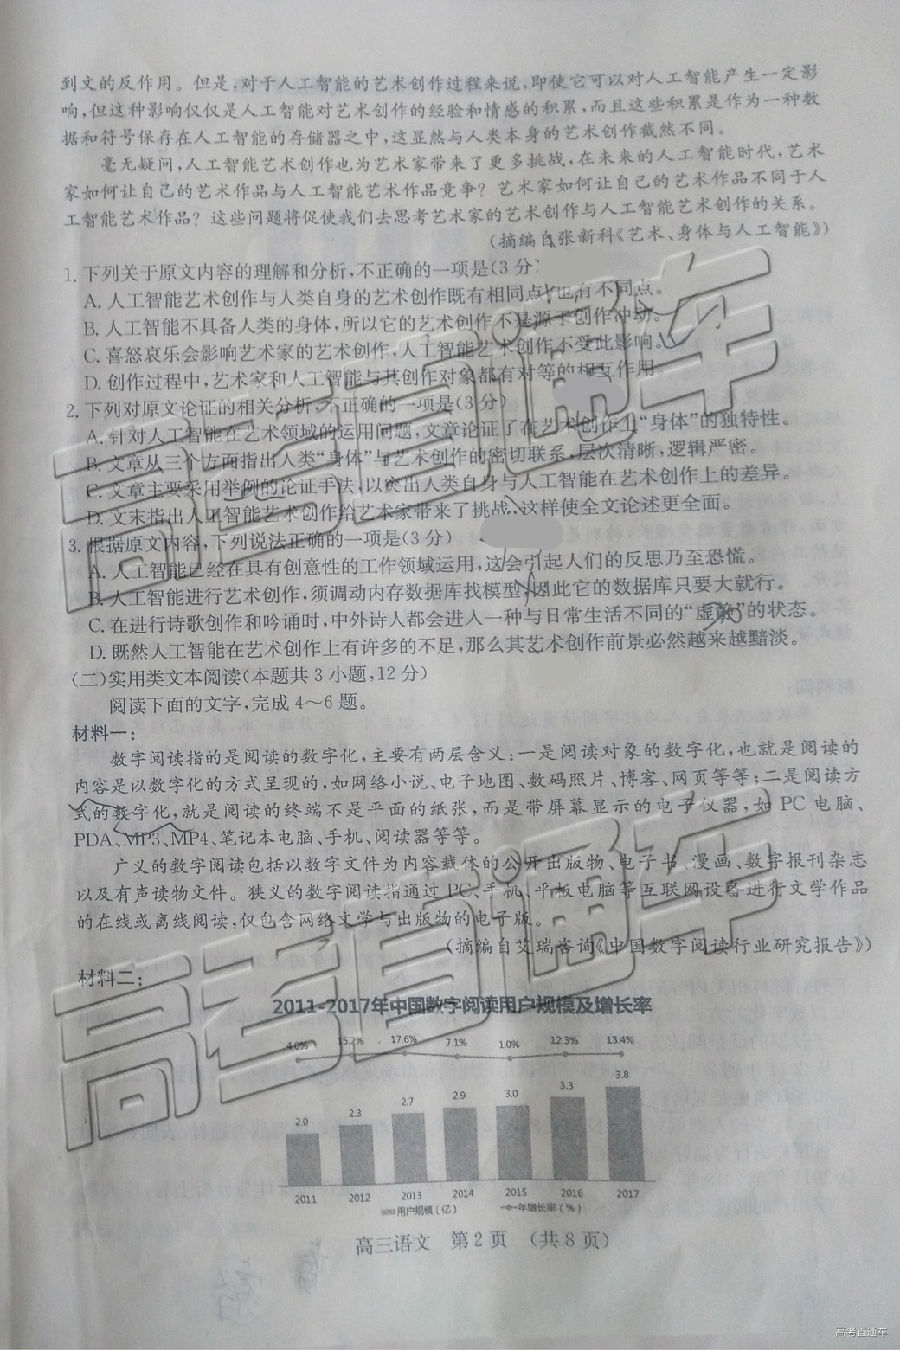 到文的反作用。但是,对于人工智能的艺术创作过程来说,即使它可以对人工智能产生一定影
响,但这种影响仅仅是人工智能对艺术创作的经验和情感的积累,而且这些积累是作为一种数
据和符号保存在人工智能的存储器之中,这显然与人类本身的艺术创作截然不同。
毫无疑问,人工智能艺术创作也为艺术家带来了更多挑战,在未来的人工智能时代,艺术
家如何让自己的艺术作品与人工智能艺术作品竞争?艺术家如何让自己的艺术作品不同于人
工智能艺术作品?这些问题将促使我们去思考艺术家的艺术创作与人工智能艺术创作的关系。
(摘编自张新科《艺术、身体与人工智能》)
1.下列关于原文内容的理解和分析,不正确的一项是(3分)
A.人工智能艺术创作与人类自身的艺术创作既有相同点,也有不同点。
B.人工智能不具备人类的身体,所以它的艺术创作不是源于创作冲动。
C.喜怒哀乐会影响艺术家的艺术创作,人工智能艺术创作不受此影响。
D.创作过程中,艺术家和人工智能与其创作对象都有对等的相互作用。
2.下列对原文论证的相关分析,不正确的一项是(3分)
A.针对人工智能在艺术领域的运用问题,文章论证了在艺术创作上“身体”的独特性。
B.文章从三个方面指出人类“身体”与艺术创作的密切联系,层次清晰,逻辑严密。
C.文章主要采用举例的论证手法,以突出人类自身与人工智能在艺术创作上的差异。
D.文末指出人工智能艺术创作给艺术家带来了挑战,这样使全文论述更全面。
3.根据原文内容,下列说法正确的一项是(3分)
A.人工智能已经在具有创意性的工作领域运用,这会引起人们的反思乃至恐慌。
B.人工智能进行艺术创作,须调动内存数据库找模型,因此它的数据库只要大就行。
C.在进行诗歌创作和吟诵时,中外诗人都会进入一种与日常生活不同的“虚静”的状态。
D.既然人工智能在艺术创作上有许多的不足,那么其艺术创作前景必然越来越黯淡。
(二)实用类文本阅读(本题共3小题,12分)
阅读下面的文字,完成4~6题。
材料一:
数字阅读指的是阅读的数字化,主要有两层含义:一是阅读对象的数字化,也就是阅读的
内容是以数字化的方式呈现的,如网络小说、电子地图、数码照片、博客、网页等等;二是阅读方
式的数字化,就是阅读的终端不是平面的纸张,而是带屏幕显示的电子仪器,如PC电脑、
PDA、MP3、MP4、笔记本电脑、手机、阅读器等等。
广义的数字阅读包括以数字文件为内容载体的公开出版物、电子书、漫画、数字报刊杂志
以及有声读物文件。狭义的数字阅读指通过PC、手机、平板电脑等互联网设备进行文学作品
的在线或离线阅读,仅包含网络文学与出版物的电子版。
(摘编自艾瑞咨询《中国数字阅读行业研究报告》)
材料二:
2011-2017年中国数字阅读用户规模及增长率
4.0% 15.2% 17.6% 7.1% 1.0% 12.3% 13.4%
2.0 2.3 2.7 2.9 3.0 3.3 3.8
2011 2012 2013 2014 2015 2016 2017
用户规模(亿) 年增长率(%)
高三语文 第2页 (共8页)
高考直通车
高考直通车
高考直通车